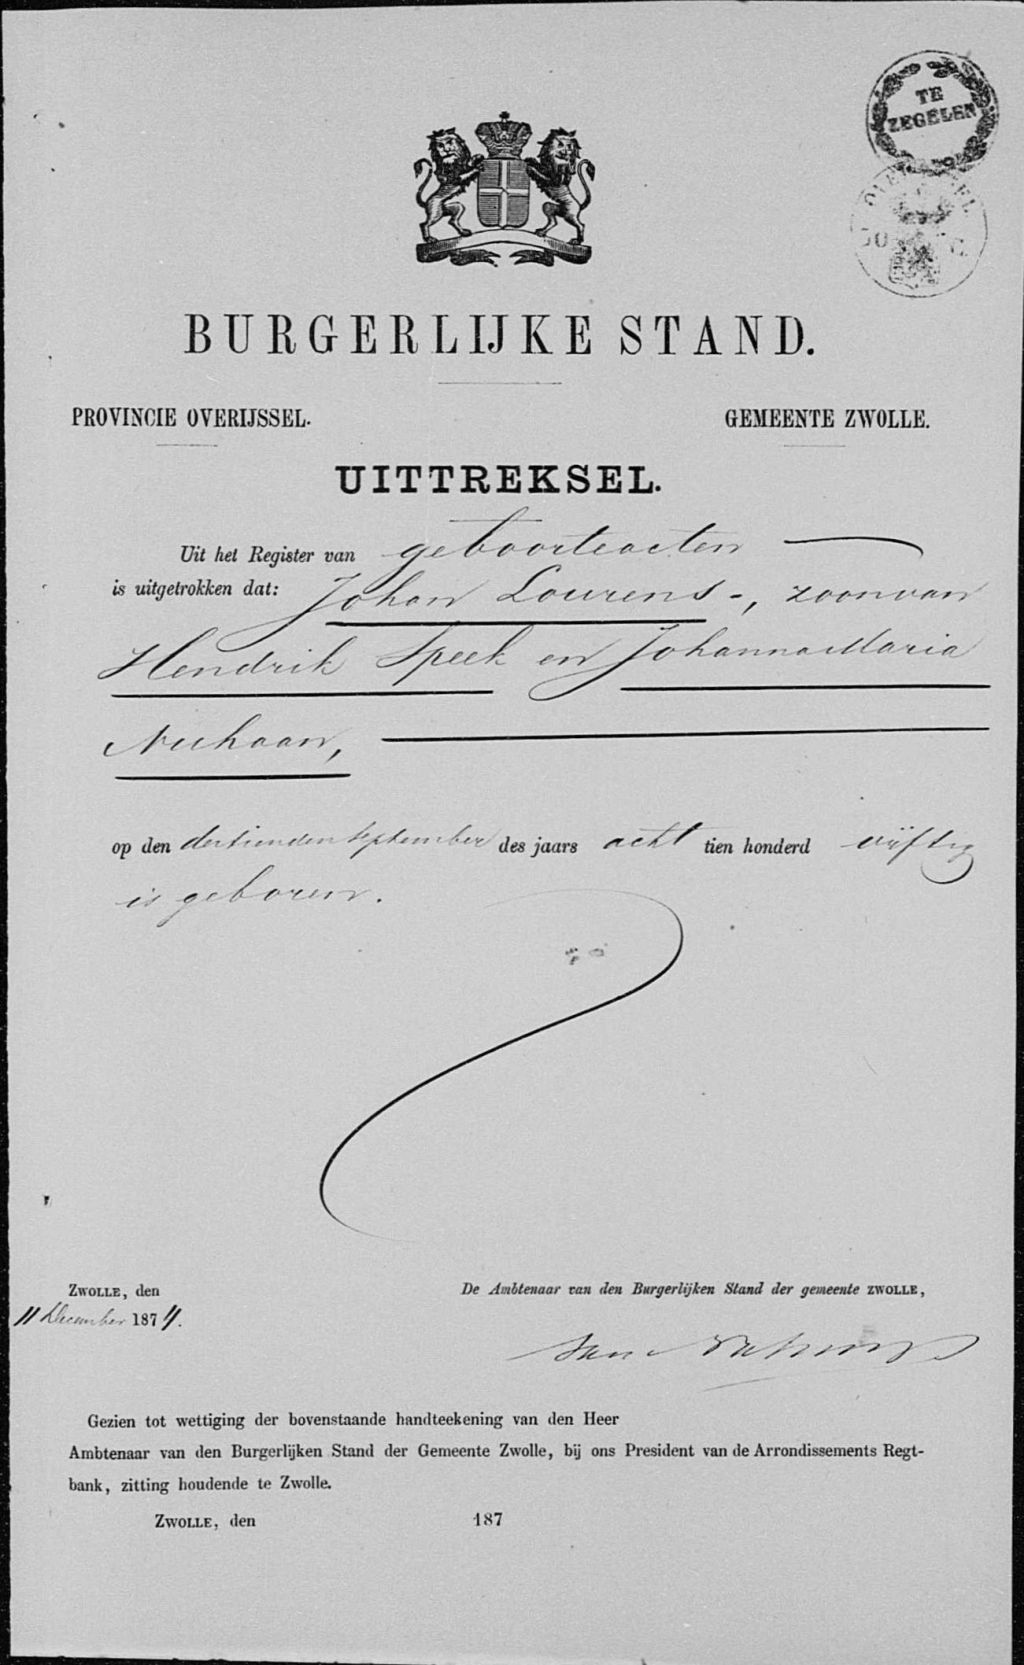 TE
ZEGELEN
BURGERLIJKE STAND.
PROVINCIE OVERIJSSEL. GEMEENTE ZWOLLE.
UITTREKSEL.
Uit het Register van geboorteacten
is uitgetrokken dat: Johan Lourens -, zoon van
Hendrik Speek en Johanna Maria
Neuhaan,
op den dertienden September des jaars acht tien honderd vijftig
is geboren.
ZWOLLE, den De Ambtenaar van den Burgerlijken Stand der gemeente ZWOLLE,
11 December 1874.
Gezien tot wettiging der bovenstaande handteekening van den Heer
Ambtenaar van den Burgerlijken Stand der Gemeente Zwolle, bij ons President van de Arrondissements Regt-
bank, zitting houdende te Zwolle.
ZWOLLE, den 187